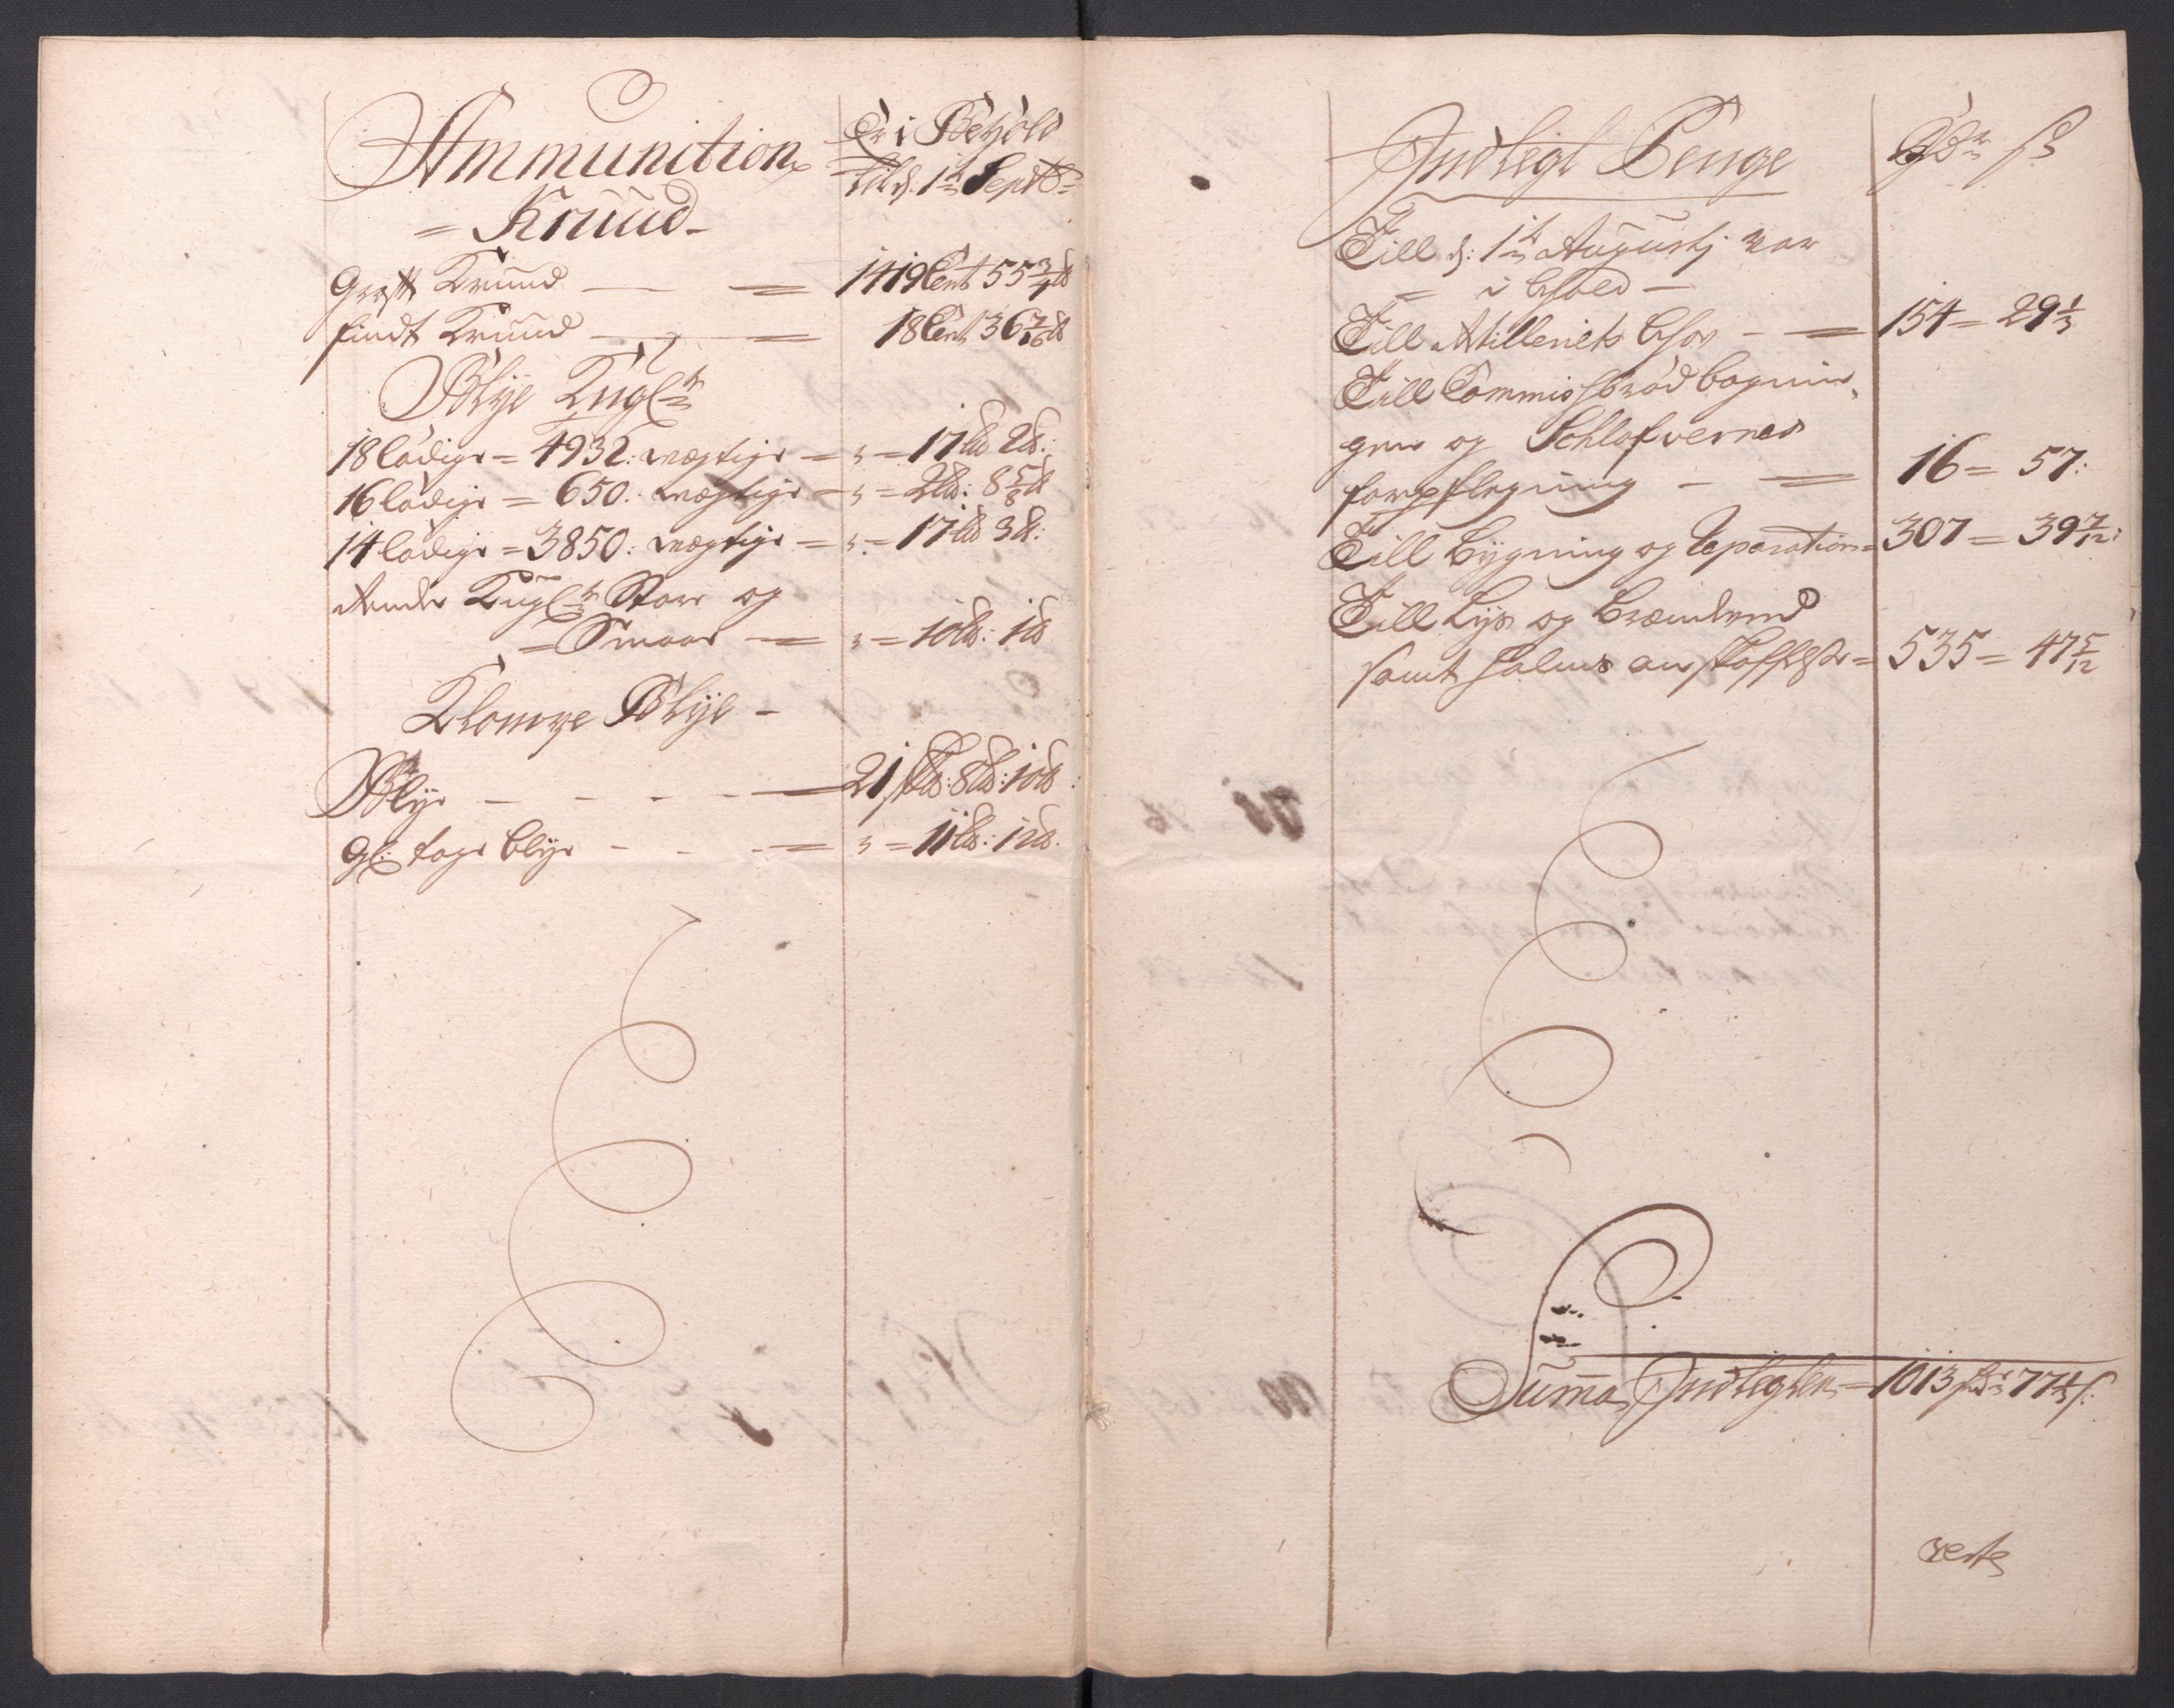 Ammunition
= Kruud -
Er i Behold
till d. 1te Septbr
Grofft Kruud — = 1419 Cent 55 3/4 ℔
findt Kruud — = 18 Cent 36 7/16 ℔
Blye Kugler
18 lödige = 4932: wægtige = 3 = 17 L℔ 2℔:
16 lödige = 650: wægtige = 3 = 2 L℔: 8 5/8 ℔
14 lödige = 3850: wægtige = 3 = 17 L℔ 3℔:
Andre Kugler Store og
= Smaae = 3 = 10 L℔: 1℔
Klompe Blye -
Blye - - - - 21 sk℔: 8 L℔: 10℔:
Gl: tage blye - - - = 3 = 11 L℔: 12℔.
Indtegt Penge
Rdr ß
Till d: 1te Augustj var
= i behold —
Till Artilleriets behov - = 154 = 29 1/3
Till Commissbrød bagnin,
gen og Schlafvernes
forpflegning - = 16 = 57:
Till bygning og Reparation = 307 = 39 7/12:
Till Lys og brændeved
samt halms anskaffelse = 535 = 47 5/12
Summa Indtegten = 1013 rdr 77 1/3 ß:
verte